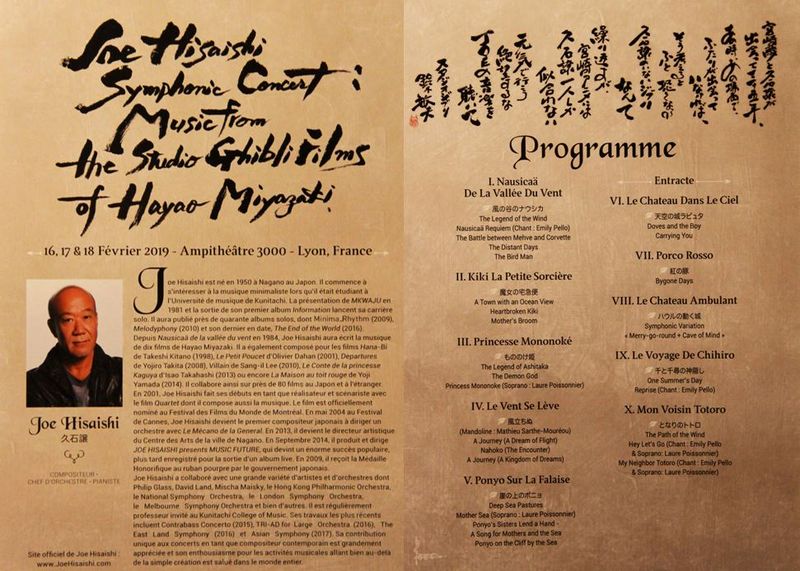 Joe Hisaishi
Symphonic Concert :
Music from
the Studio Ghibli Films
of Hayao Miyazaki
16, 17 & 18 Février 2019 - Ampithéâtre 3000 - Lyon, France
Joe Hisaishi est né en 1950 à Nagano au Japon. Il commence à
s'intéresser à la musique minimaliste lors qu'il était étudiant à
l'Université de musique de Kunitachi. La présentation de MKWAJU en
1981 et la sortie de son premier album Information lancent sa carrière
solo. Il aura publié près de quarante albums solos, dont Minima_Rhythm (2009),
Melodyphony (2010) et son dernier en date, The End of the World (2016).
Depuis Nausicaä de la vallée du vent en 1984, Joe Hisaishi aura écrit la musique
de dix films de Hayao Miyazaki. Il a également composé pour les films Hana-Bi
de Takeshi Kitano (1998), Le Petit Poucet d'Olivier Dahan (2001), Departures
de Yojiro Takita (2008), Villain de Sang-il Lee (2010), Le Conte de la princesse
Kaguya d'Isao Takahashi (2013) ou encore La Maison au toit rouge de Yoji
Yamada (2014). Il collabore ainsi sur près de 80 films au Japon et à l'étranger.
En 2001, Joe Hisaishi fait ses débuts en tant que réalisateur et scénariste avec
le film Quartet dont il compose aussi la musique. Le film est officiellement
nominé au Festival des Films du Monde de Montréal. En mai 2004 au Festival
de Cannes, Joe Hisaishi devient le premier compositeur japonais à diriger un
orchestre avec Le Mécano de la General. En 2013, il devient le directeur artistique
du Centre des Arts de la ville de Nagano. En Septembre 2014, il produit et dirige
JOE HISAISHI presents MUSIC FUTURE, qui devint un énorme succès populaire,
plus tard enregistré pour la sortie d'un album live. En 2009, il reçoit la Médaille
Honorifique au ruban pourpre par le gouvernement japonais.
Joe Hisaishi a collaboré avec une grande variété d'artistes et d'orchestres dont
Philip Glass, David Land, Mischa Maisky, le Hong Kong Philharmonic Orchestra,
le National Symphony Orchestra, le London Symphony Orchestra,
le Melbourne Symphony Orchestra et bien d'autres. Il est régulièrement
professeur invité au Kunitachi College of Music. Ses travaux les plus récents
incluent Contrabass Concerto (2015), TRI-AD for Large Orchestra (2016), The
East Land Symphony (2016) et Asian Symphony (2017). Sa contribution
unique aux concerts en tant que compositeur contemporain est grandement
appréciée et son enthousiasme pour les activités musicales allant bien au-delà
de la simple création est salué dans le monde entier.
Joe Hisaishi
久石譲
COMPOSITEUR -
CHEF D'ORCHESTRE - PIANISTE
Site officiel de Joe Hisaishi :
www.JoeHisaishi.com
Programme
I. Nausicaä
De La Vallée Du Vent
風の谷のナウシカ
The Legend of the Wind
Nausicaä Requiem (Chant : Emily Pello)
The Battle between Mehve and Corvette
The Distant Days
The Bird Man
II. Kiki La Petite Sorcière
魔女の宅急便
A Town with an Ocean View
Heartbroken Kiki
Mother's Broom
III. Princesse Mononoké
もののけ姫
The Legend of Ashitaka
The Demon God
Princess Mononoke (Soprano : Laure Poissonnier)
IV. Le Vent Se Lève
風立ちぬ
(Mandoline : Mathieu Sarthe-Mouréou)
A Journey (A Dream of Flight)
Nahoko (The Encounter)
A Journey (A Kingdom of Dreams)
V. Ponyo Sur La Falaise
崖の上のポニョ
Deep Sea Pastures
Mother Sea (Soprano : Laure Poissonnier)
Ponyo's Sisters Lend a Hand -
A Song for Mothers and the Sea
Ponyo on the Cliff by the Sea
Entracte
VI. Le Chateau Dans Le Ciel
天空の城ラピュタ
Doves and the Boy
Carrying You
VII. Porco Rosso
紅の豚
Bygone Days
VIII. Le Chateau Ambulant
ハウルの動く城
Symphonic Variation
« Merry-go-round + Cave of Mind »
IX. Le Voyage De Chihiro
千と千尋の神隠し
One Summer's Day
Reprise (Chant : Emily Pello)
X. Mon Voisin Totoro
となりのトトロ
The Path of the Wind
Hey Let's Go (Chant : Emily Pello
& Soprano: Laure Poissonnier)
My Neighbor Totoro (Chant : Emily Pello
& Soprano : Laure Poissonnier)